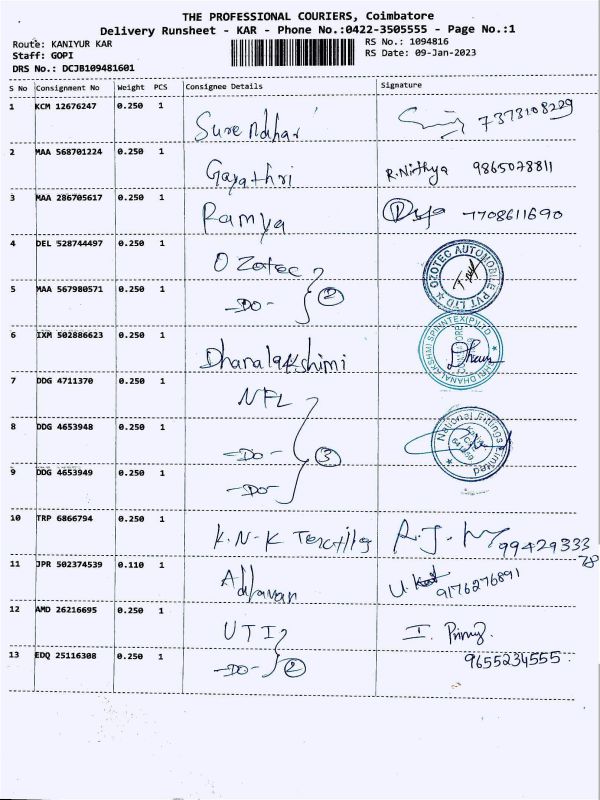 THE PROFESSIONAL COURIERS, Coimbatore
Delivery Runsheet - KAR - Phone No.:0422-3505555 - Page No.:1
Route: KANIYUR KAR
RS No.: 1094816
Staff: GOPI
RS Date: 09-Jan-2023
DRS No.: DCJB109481601
S No Consignment No Weight PCS Consignee Details Signature
1 KCM 12676247 0.250 1
Surendhar 7373108229
2 MAA 568701224 0.250 1
Gayathri R.Nithya 9865078811
3 MAA 286705617 0.250 1
Ramya 7708611690
4 DEL 528744497 0.250 1
O Zotec OZOTEC AUTOMOBILE PVT LTD
5 MAA 567980571 0.250 1
-DO- 2
6 IXM 502886623 0.250 1
Dhanalakshimi SHRI DHANALAKSHMI SPINNTEX(P)LTD
7 DDG 4711370 0.250 1
NFL
8 DDG 4653948 0.250 1
-DO- 3 National Fittings Limited
9 DDG 4653949 0.250 1
-DO-
10 TRP 6866794 0.250 1
K.N.K 99429333
78
11 JPR 502374539 0.110 1
9176276891
12 AMD 26216695 0.250 1
UTI
13 EDQ 25116308 0.250 1
-DO- 2 9655234555